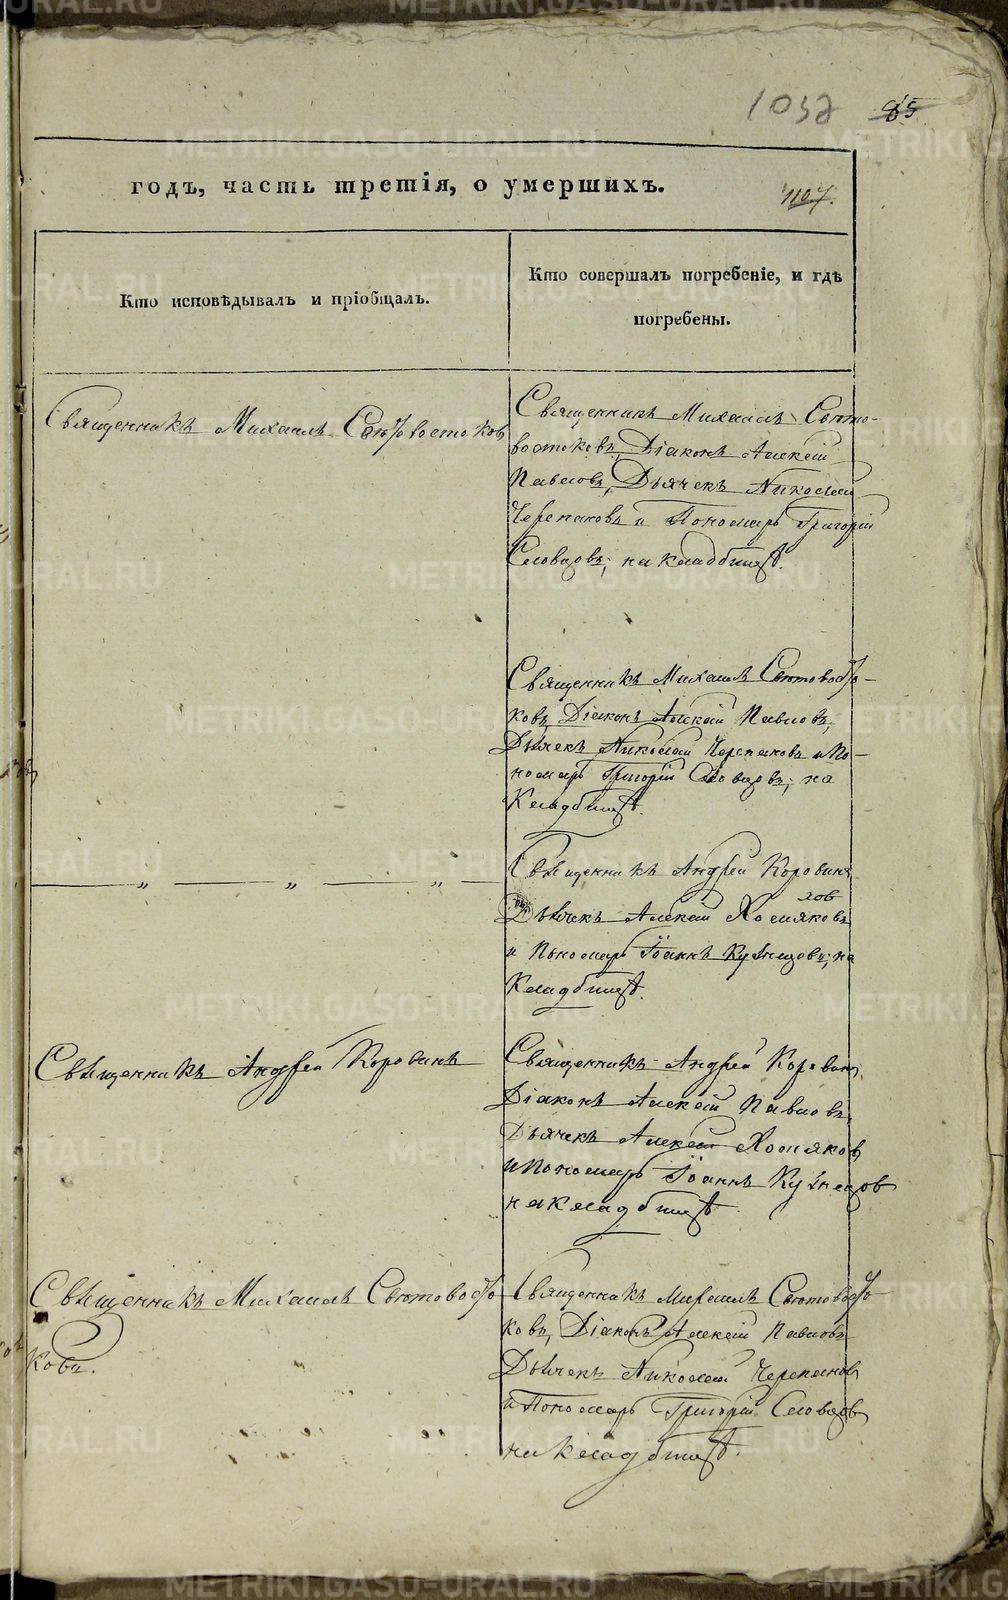 1032 85
годъ, часть третія, о умершихъ.
1107.
Кто исповѣдывалъ и пріобщалъ.
Кто совершалъ погребеніе, и гдѣ
погребены.
Священникъ Михаилъ Свѣтовостоковъ
Священникъ Михаилъ Свѣто-
востоковъ, Діаконъ Алексій
Павловъ, Дьячекъ Николай
Черепановъ и Пономарь Григорій
Словцовъ; на кладбищѣ.
Священникъ Михаилъ Свѣтовосто-
ковъ, Діаконъ Алексій Павловъ,
Дьячекъ Николай Черепановъ и По-
номарь Григорій Словцовъ; на
Кладбищѣ.
— „ — „ — „ —
Священникъ Андрей Коровинъ
Дьячекъ Алексій Хомяковъ
и Пономарь Іоаннъ Кузнецовъ; на
Кладбищѣ.
Священникъ Андрей Коровинъ
Священникъ Андрей Коровинъ,
Діаконъ Алексій Павловъ,
Дьячекъ Алексій Хомяковъ
и Пономарь Іоаннъ Кузнецовъ
на кладбищѣ
Священникъ Михаилъ Свѣтовосто-
ковъ.
Священникъ Михаилъ Свѣтовосто-
ковъ, Діаконъ Алексій Павловъ
Дьячекъ Николай Черепановъ
и Пономарь Григорій Словцовъ
на Кладбищѣ.
METRIKI.GASO-URAL.RU